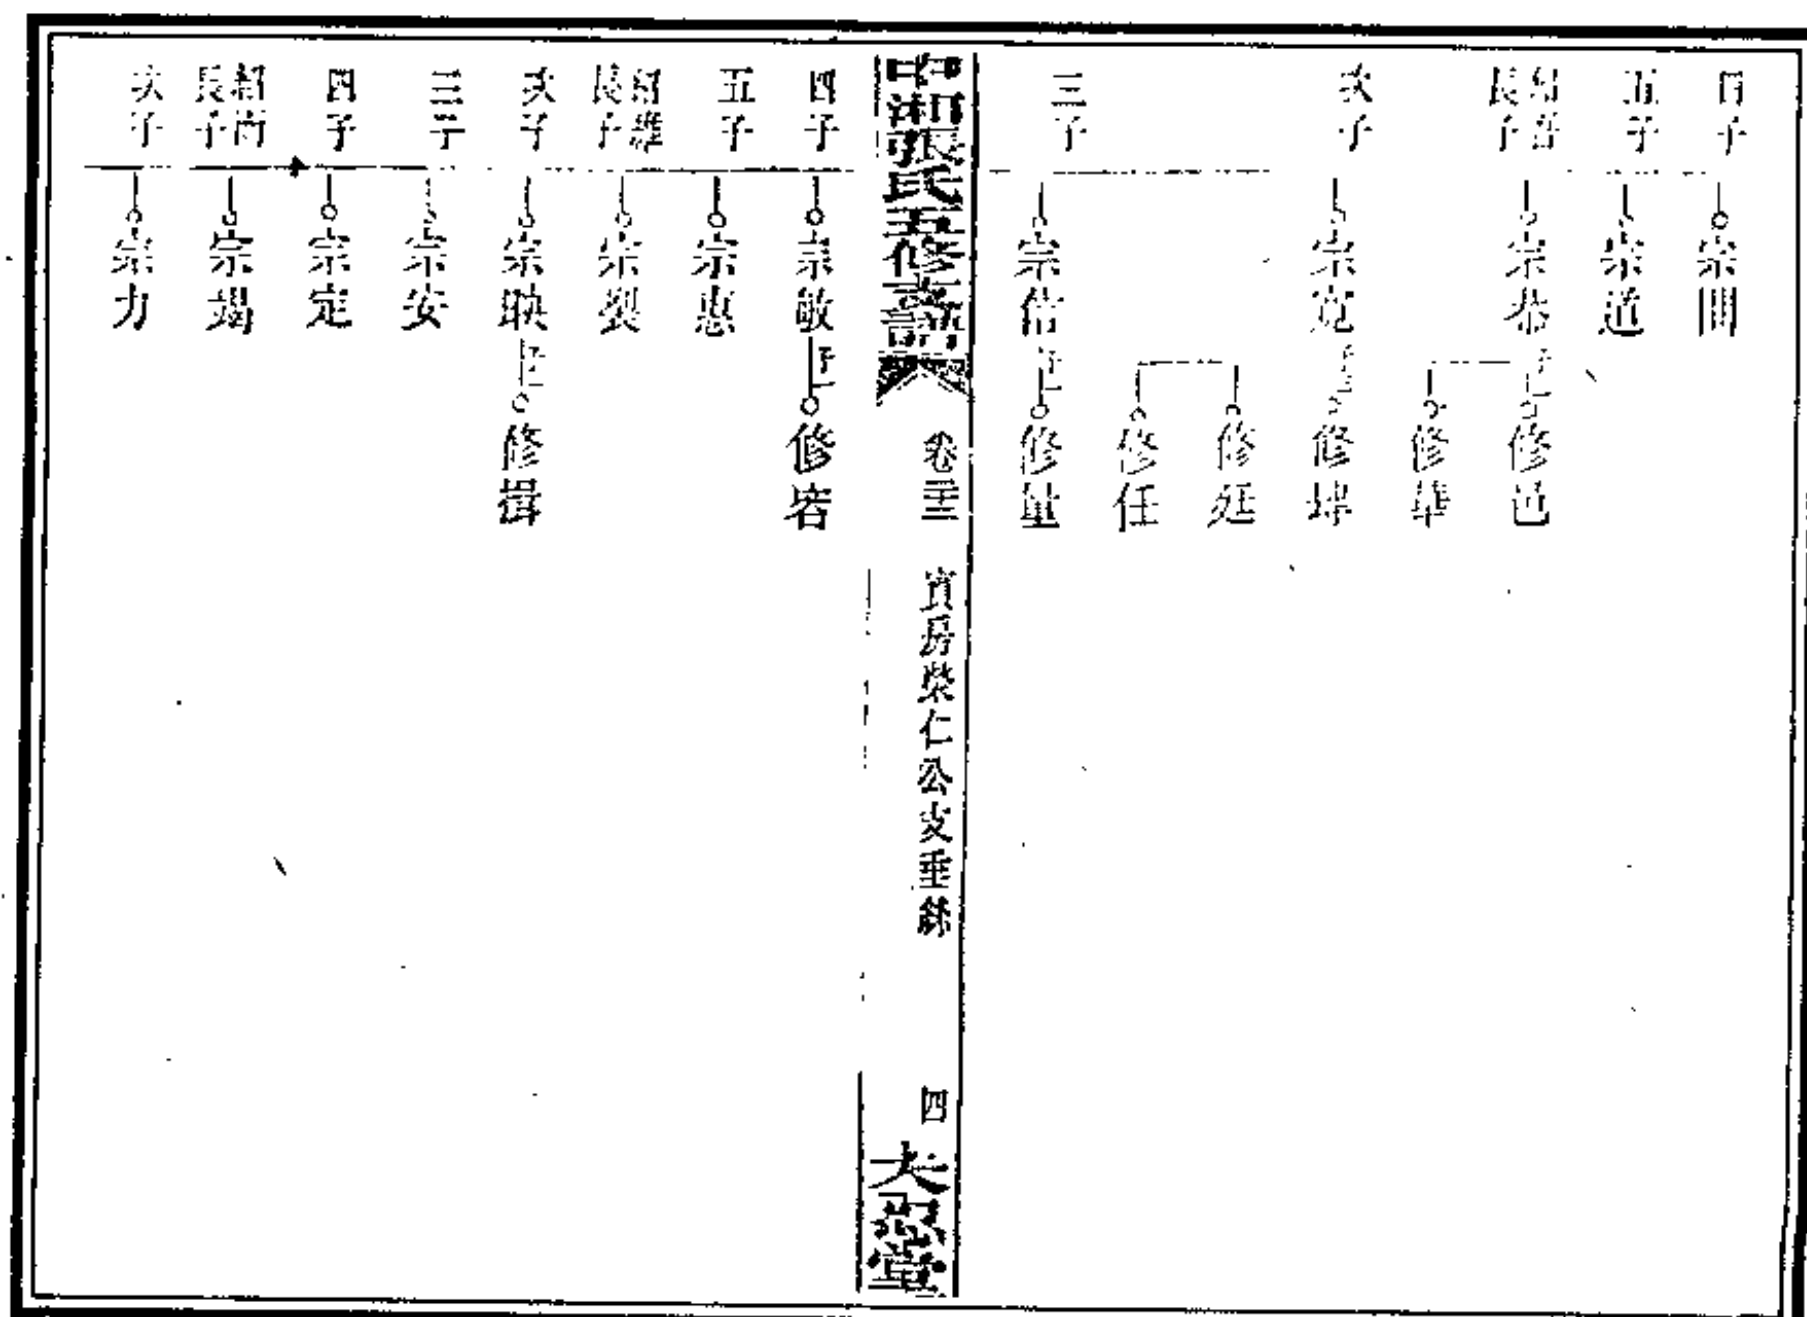 四子
宗問
五子
宗道
長子
宗恭
子二
修邑
修華
次子
宗寬
修埤
修廷
修任
三子
宗信
子一
修量
中湘張氏五修支譜
卷三
寅房榮仁公支垂絲
四
大
堂
四子
宗敏
子一
修塔
五子
宗惠
紹雄
長子
宗裂
次子
宗映
子一
修揖
三子
宗安
四子
宗定
長子
宗竭
次子
宗力